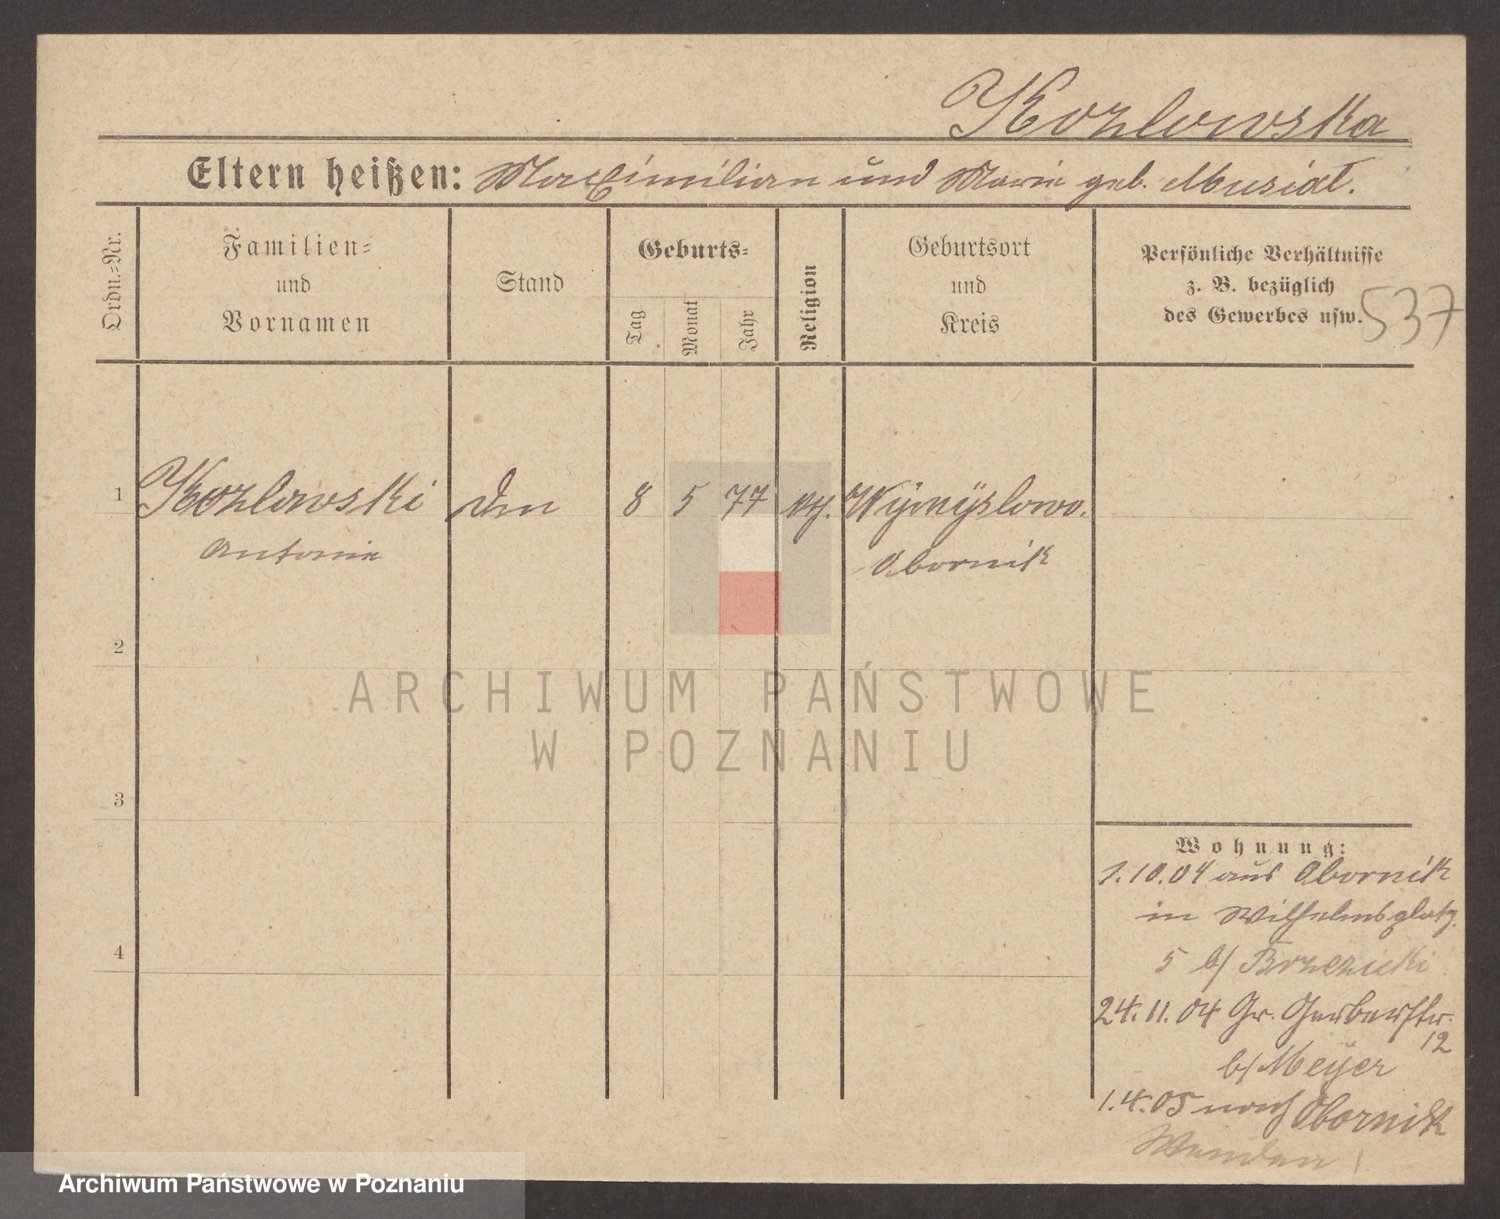 Kozlowska
Eltern heißen: Maximilian und Marie geb. Musial.
Ordn.=Nr.
Familien=
und
Vornamen
Stand
Geburts=
Tag
Monat
Jahr
Religion
Geburtsort
und
Kreis
Persönliche Verhältnisse
z. B. bezüglich
des Gewerbes usw.
537
1 Kozlowski 8 5 77 Wymyslowo.
Antonie Obornik
2
3
4
Wohnung:
1.10.04 aus Obornik
in Wilhelmsplatz
5 b/ Brzezicki
24.11.04 Gr. Gerberstr.
12
b/ Meyer
1.4.05 nach Obornik
ARCHIWUM PAŃSTWOWE
W POZNANIU
Archiwum Państwowe w Poznaniu